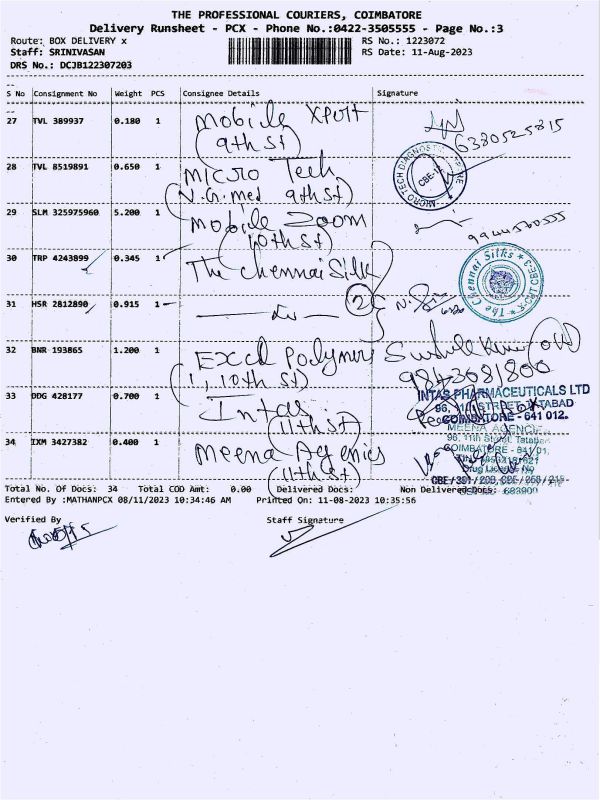 THE PROFESSIONAL COURIERS, COIMBATORE
Delivery Runsheet - PCX - Phone No.:0422-3505555 - Page No.:3
Route: BOX DELIVERY x RS No.: 1223072
Staff: SRINIVASAN RS Date: 11-Aug-2023
DRS No.: DCJB122307203
S No Consignment No Weight PCS Consignee Details Signature
27 TVL 389937 0.180 1 Mobile Xpert
(9th St) 6380525815
28 TVL 8519891 0.650 1 Micro Tech
(N.G.med 9th St) MICRO-TECH DIAGNOSTIC CBE-12
29 SLM 325975960 5.200 1 Mobile Zoom
(10th St) 9944560555
30 TRP 4243899 0.345 1 The Chennai Silk
* The Chennai Silks *
31 HSR 2812890 0.915 1 2
32 BNR 193865 1.200 1 Excel Polymers
(1, 10th St) 9843681800
33 DDG 428177 0.700 1 Intas
(11th St) INTAS PHARMACEUTICALS LTD
96, 11th STREET, TATABAD
COIMBATORE - 641 012.
34 IXM 3427382 0.400 1 Meena Agencies
(11th St) MEENA AGENCIES
96, 11th Street, Tatabad
COIMBATORE - 641 012
Drug Licence No
Total No. Of Docs: 34 Total COD Amt: 0.00 Delivered Docs: Non Delivered Docs:
Entered By :MATHANPCX 08/11/2023 10:34:46 AM Printed On: 11-08-2023 10:35:56
Verified By Staff Signature